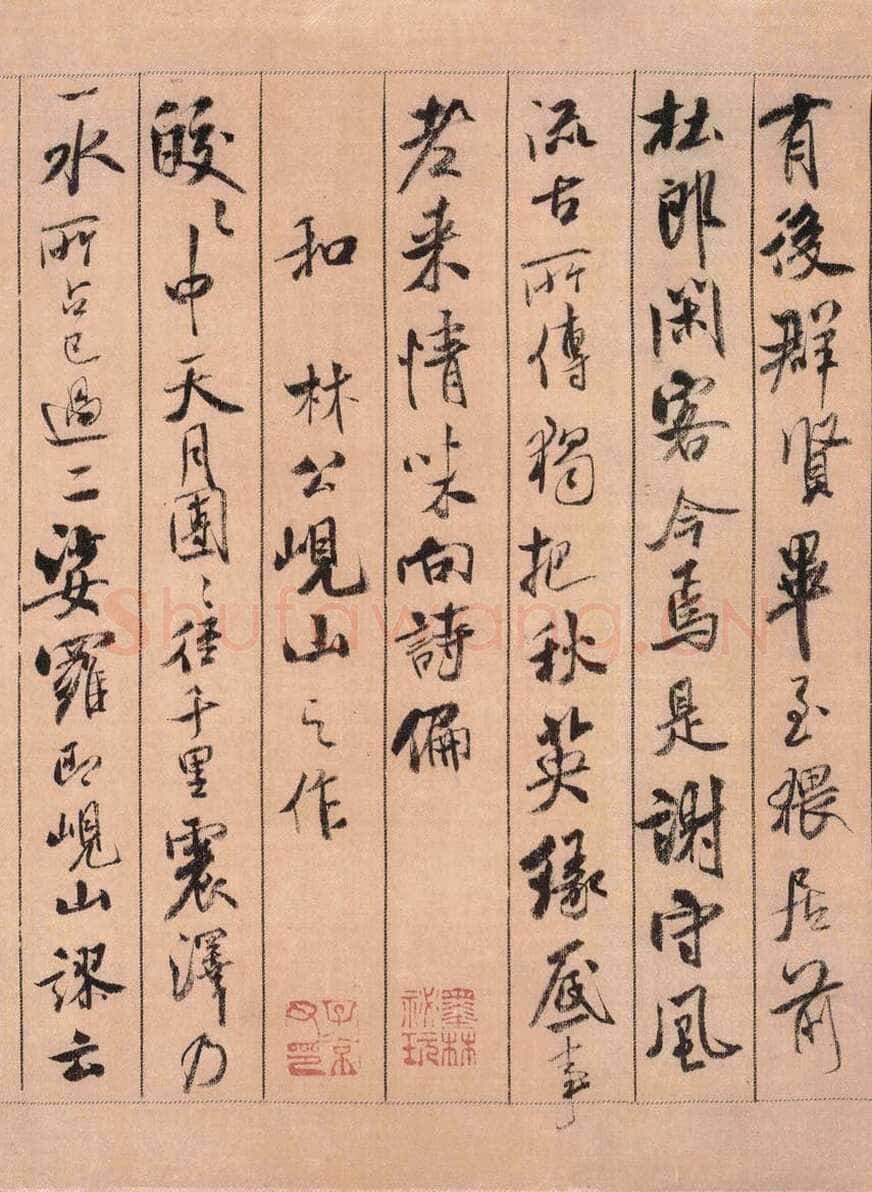 有後群賢畢至猥居前
杜郎閑客今焉是謝守風
流古所傳獨把秋英緣底事
老来情味向詩偏
墨林秘玩
和林公峴山之作
子京父印
皎〻中天月團〻徑千里震澤乃
一水所占已過二娑羅即峴山謬云
Shufawang.CN